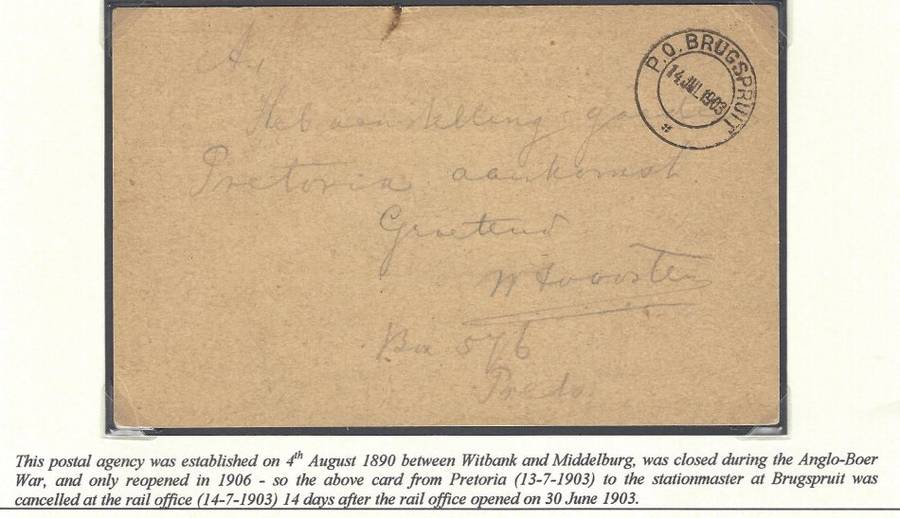 P.O. BRUGSPRUIT
14 JUL 1903
Heb aanstelling
Pretoria aankomst
Groetend
Box 576
This postal agency was established on 4th August 1890 between Witbank and Middelburg, was closed during the Anglo-Boer
War, and only reopened in 1906 - so the above card from Pretoria (13-7-1903) to the stationmaster at Brugspruit was
cancelled at the rail office (14-7-1903) 14 days after the rail office opened on 30 June 1903.